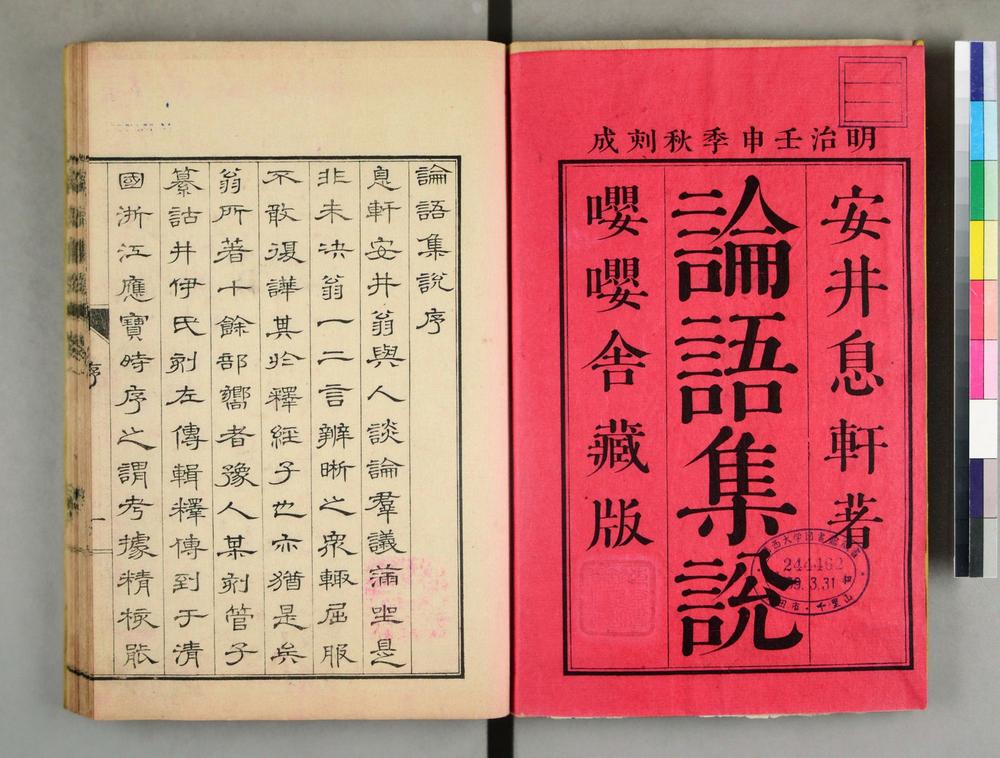 明治壬申季秋刻成
安井息軒著
論語集說
嚶嚶舍藏版
244462
論語集說序
息軒安井翁與人談論羣議滿坐是
非未決翁一二言辨晰之衆輒屈服
不敢復譁其於釋經子也亦猶是矣
翁所著十餘部嚮者豫人某刻管子
纂詁井伊氏刻左傳輯釋傳到于清
國浙江應寶時序之謂考據精核能
序
一